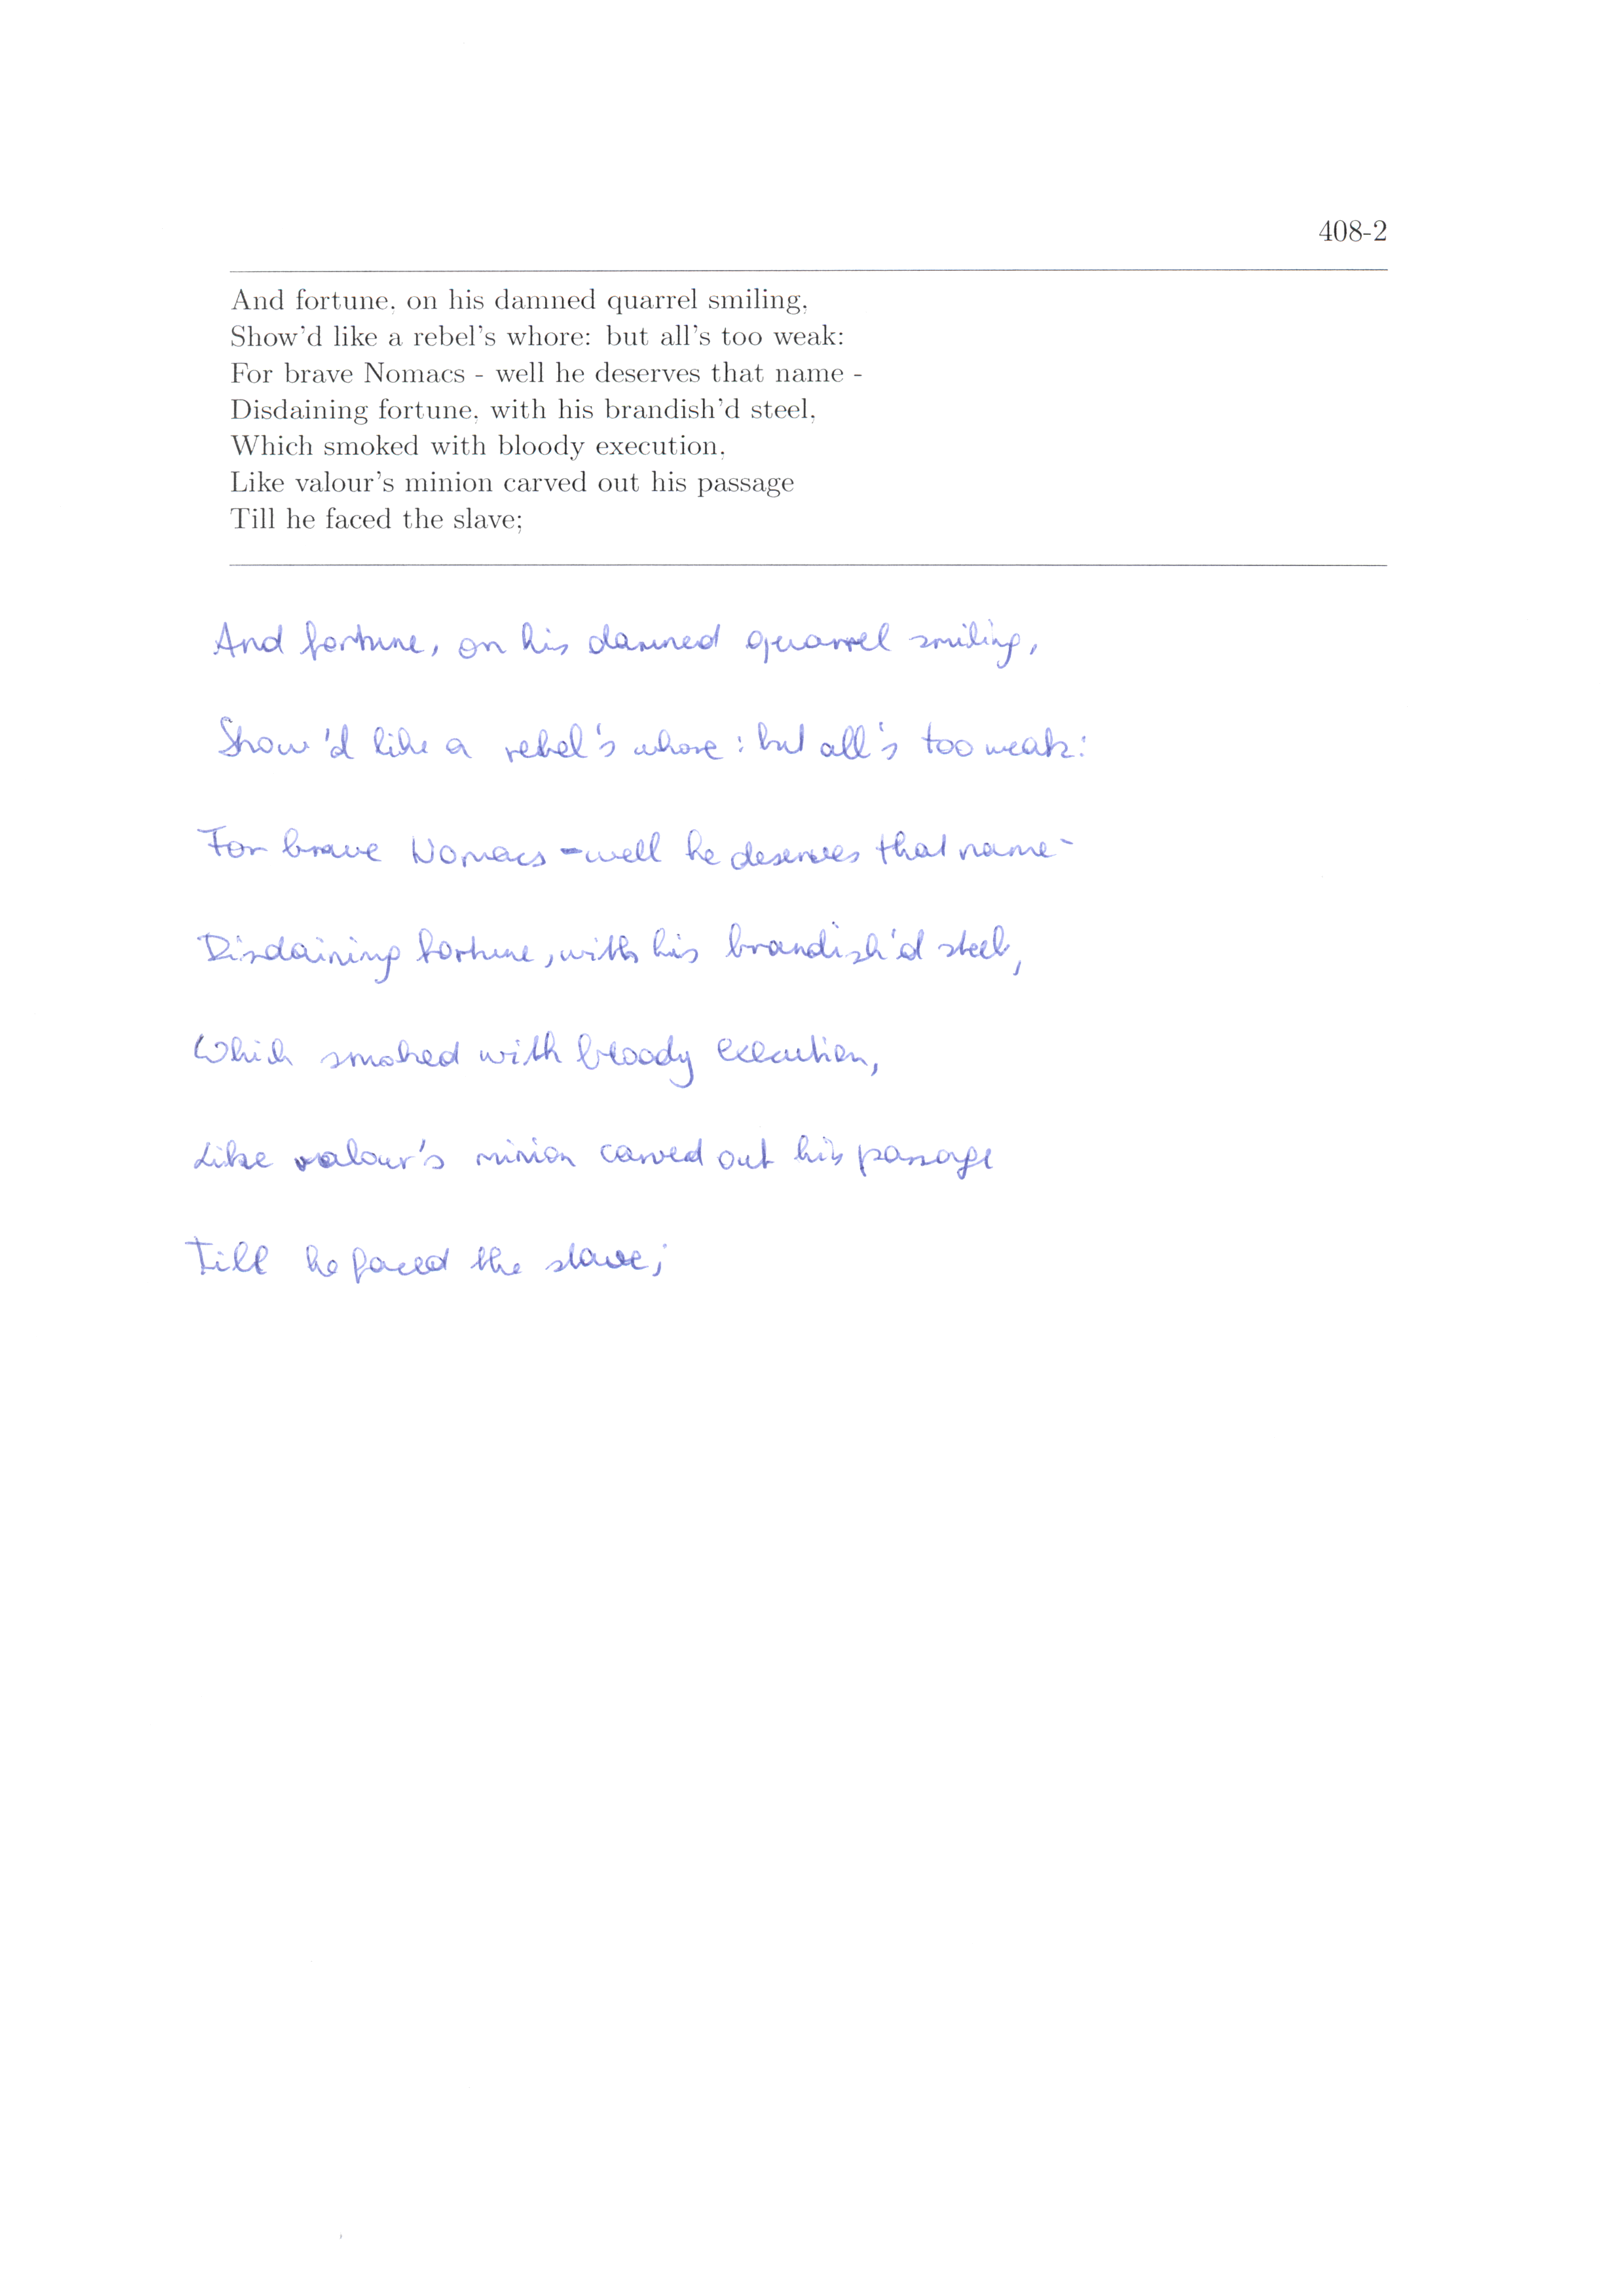 408-2
And fortune, on his damned quarrel smiling,
Show'd like a rebel's whore: but all's too weak:
For brave Nomacs - well he deserves that name -
Disdaining fortune, with his brandish'd steel,
Which smoked with bloody execution,
Like valour's minion carved out his passage
Till he faced the slave;
And fortune, on his damned quarrel smiling,
Show'd like a rebel's whore: but all's too weak:
For brave Nomacs - well he deserves that name -
Disdaining fortune, with his brandish'd steel,
Which smoked with bloody execution,
Like valour's minion carved out his passage
Till he faced the slave;